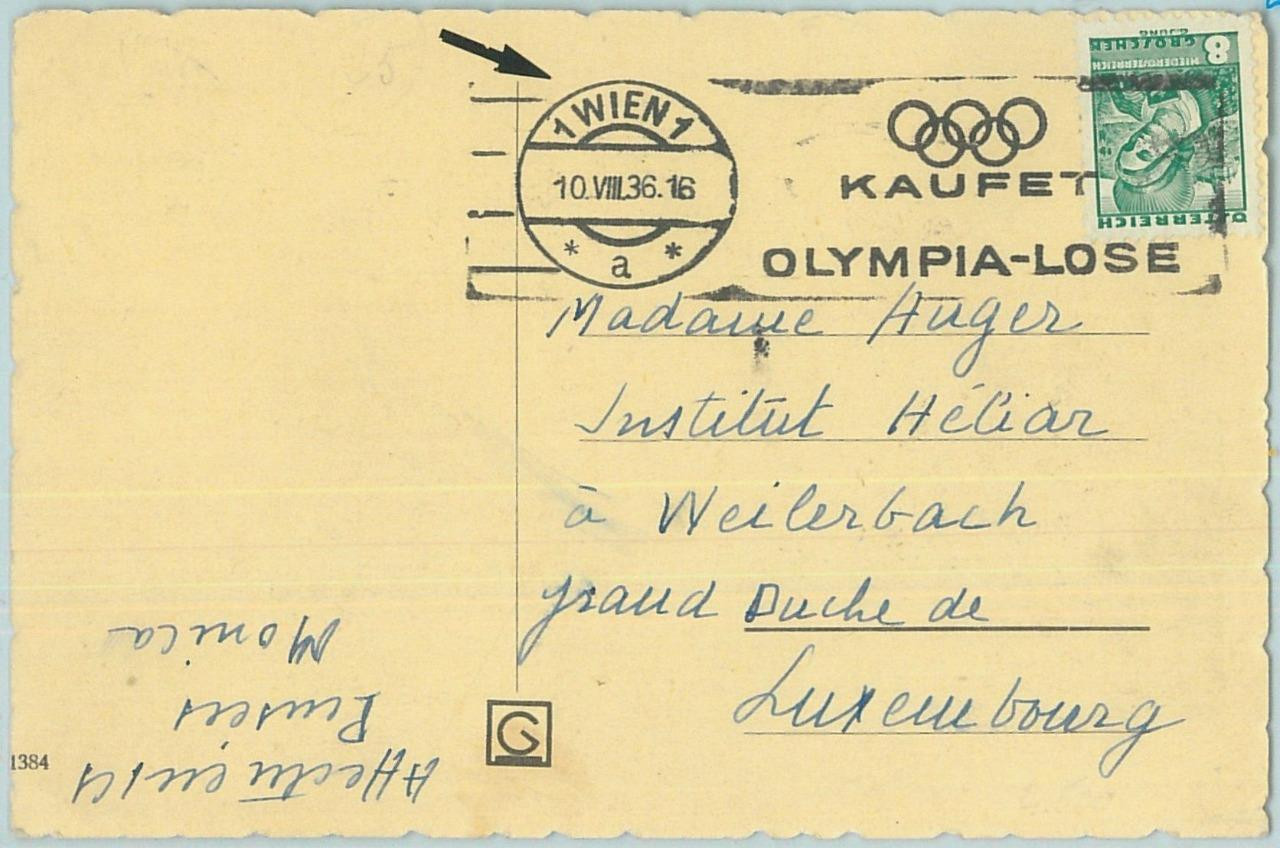 1 WIEN 1
10.VIII.36.16
* a *
KAUFET
OLYMPIA-LOSE
8
GROSCHEN
NIEDERÖSTERREICH
ÖSTERREICH
Madame Auger
Institut Héliar
à Weilerbach
Grand Duche de
Luxembourg
Monica
G
1384